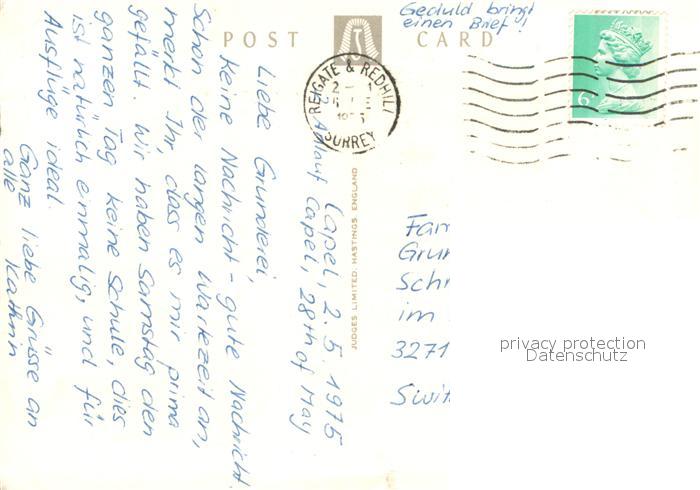 Geduld bringt
einen Brief!
POST CARD
REIGATE & REDHILL
SURREY
6
Capel, 2.5.1975
2. Anlauf Capel, 28th of May
Liebe Grunderei,
Keine Nachricht - gute Nachricht.
Schon der langen Wartezeit an,
merkt Ihr, dass es mir prima
gefällt. Wir haben Samstag den
ganzen Tag keine Schule, dies
ist natürlich einmalig, und für
Ausflüge ideal.
Ganz liebe Grüsse an
alle Kathrin
JUDGES LIMITED, HASTINGS, ENGLAND
Fam
Grun
Schr
im
3271
Swit
privacy protection
Datenschutz